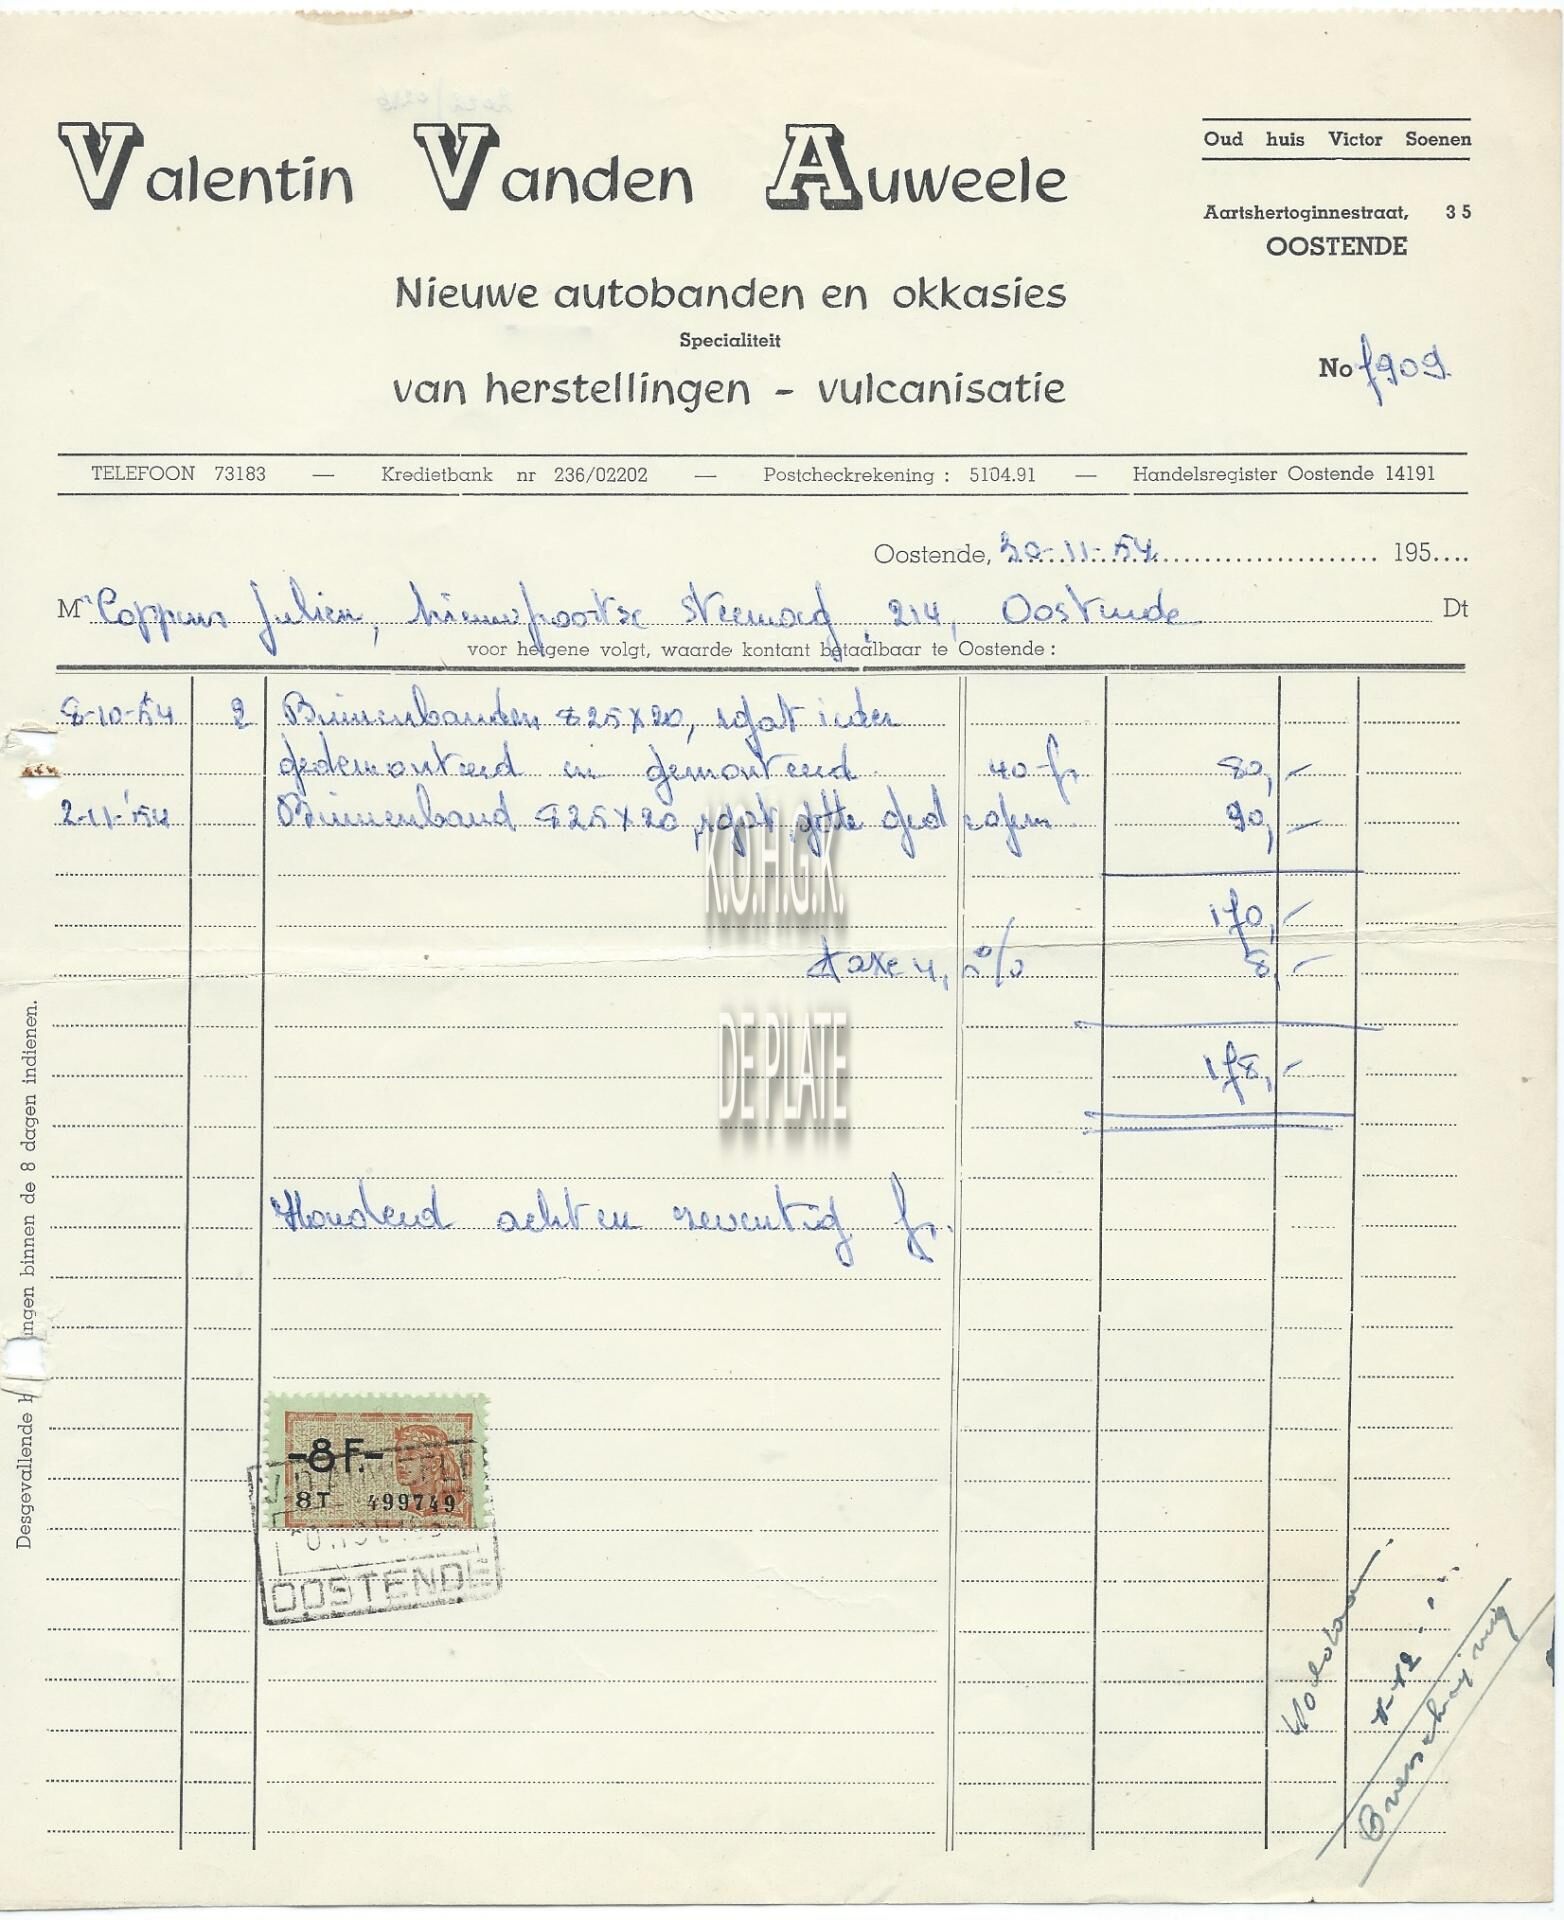 Valentin Vanden Auweele
Oud huis Victor Soenen
Aartshertoginnestraat, 35
OOSTENDE
Nieuwe autobanden en okkasies
Specialiteit
van herstellingen - vulcanisatie
No 7909
TELEFOON 73183 — Kredietbank nr 236/02202 — Postcheckrekening : 5104.91 — Handelsregister Oostende 14191
Oostende, 30-11-54 195....
Mr Coppens Julien, Nieuwpoortse steenweg, 214, Oostende Dt
voor hetgene volgt, waarde kontant betaalbaar te Oostende :
8-10-54 2 Binnenbanden 825x20, ieder
gedemonteerd en gemonteerd 40 fr 80,-
2-11-54 Binnenband 825x20, 90,-
170,-
taxe 4, % 8,-
178,-
Honderd acht en zeventig fr.
Desgevallende ingen binnen de 8 dagen indienen.
K.O.H.G.K.
DE PLATE
-8 F.-
8T 499749
OOSTENDE
Voldaan
Overschrijving